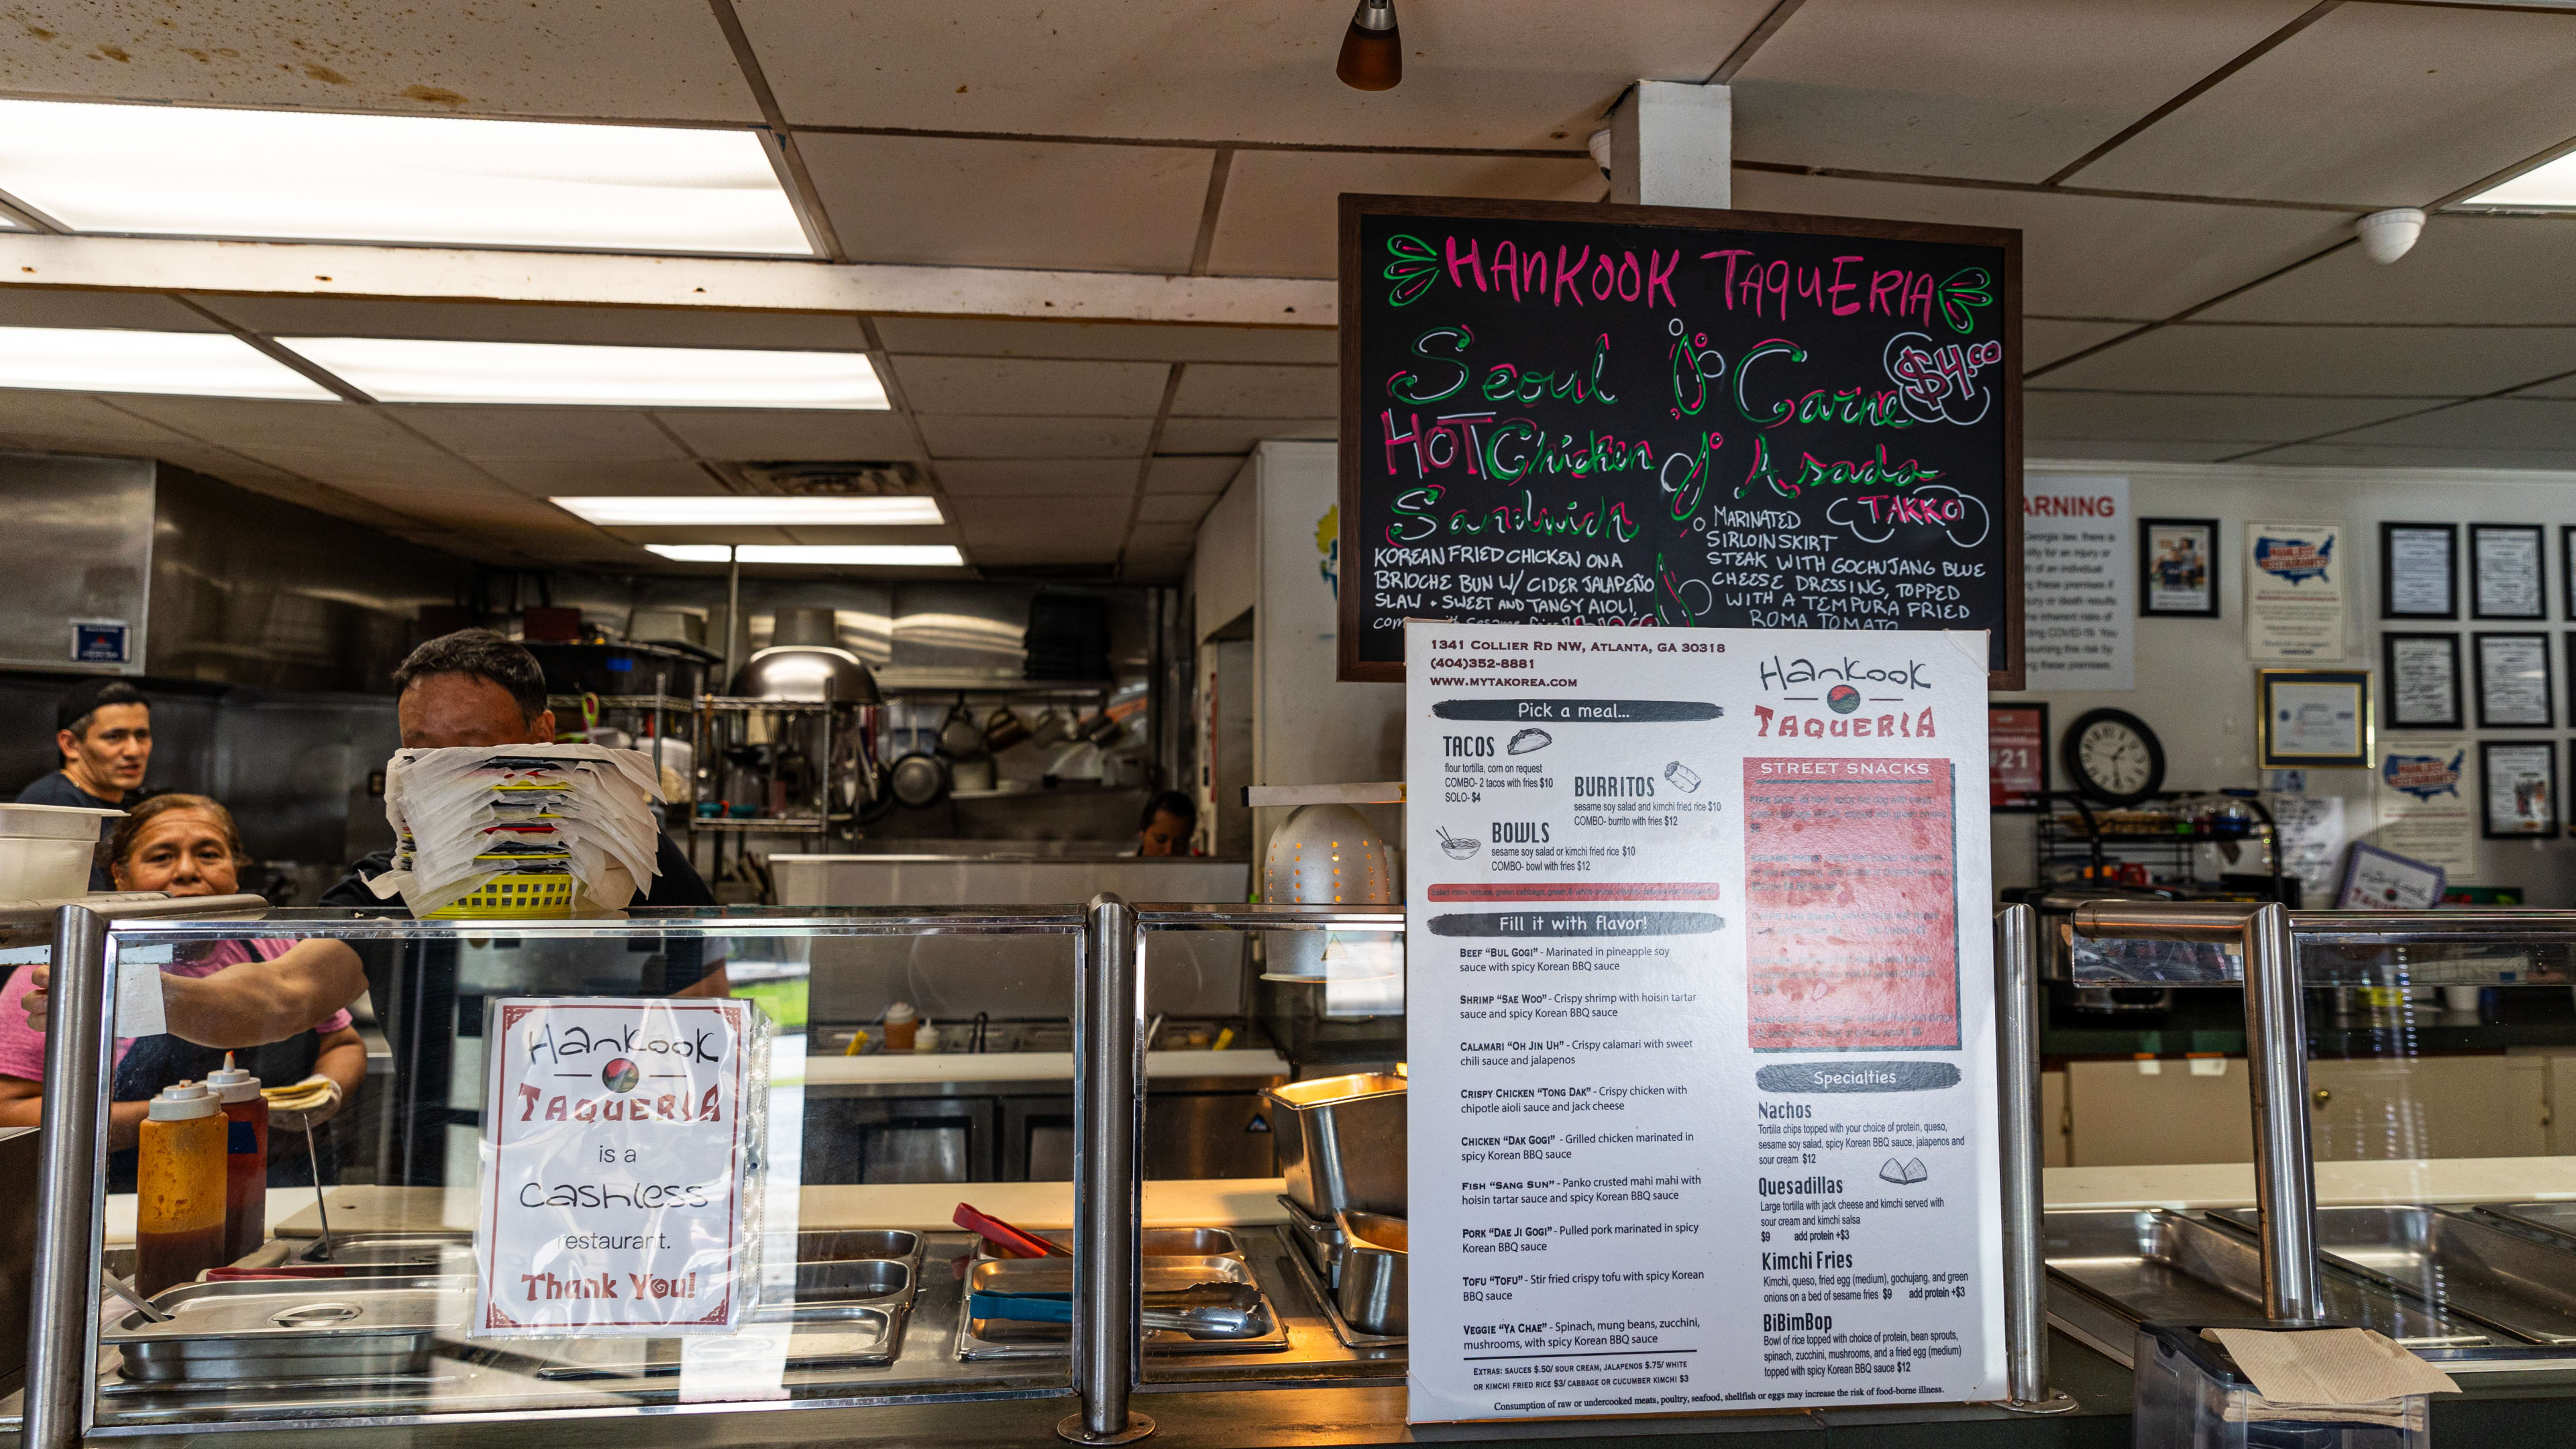 HANKOOK TAQUERIA
Seoul
HOT Chicken
Sandwich
KOREAN FRIED CHICKEN ON A
BRIOCHE BUN W/ CIDER JALAPEÑO
SLAW + SWEET AND TANGY AIOLI,
$4.00
Carne
Asada
TAKKO
MARINATED
SIRLOIN SKIRT
STEAK WITH GOCHUJANG BLUE
CHEESE DRESSING, TOPPED
WITH A TEMPURA FRIED
ROMA TOMATO
1341 COLLIER RD NW, ATLANTA, GA 30318
(404)352-8881
WWW.MYTAKOREA.COM
Hankook
TAQUERIA
Pick a meal...
TACOS
flour tortilla, corn on request
COMBO- 2 tacos with fries $10
SOLO- $4
BURRITOS
sesame soy salad and kimchi fried rice $10
COMBO- burrito with fries $12
BOWLS
sesame soy salad or kimchi fried rice $10
COMBO- bowl with fries $12
Fill it with flavor!
BEEF "BUL GOGI" - Marinated in pineapple soy
sauce with spicy Korean BBQ sauce
SHRIMP "SAE WOO" - Crispy shrimp with hoisin tartar
sauce and spicy Korean BBQ sauce
CALAMARI "OH JIN UH" - Crispy calamari with sweet
chili sauce and jalapenos
CRISPY CHICKEN "TONG DAK" - Crispy chicken with
chipotle aioli sauce and jack cheese
CHICKEN "DAK GOGI" - Grilled chicken marinated in
spicy Korean BBQ sauce
FISH "SANG SUN" - Panko crusted mahi mahi with
hoisin tartar sauce and spicy Korean BBQ sauce
PORK "DAE JI GOGI" - Pulled pork marinated in spicy
Korean BBQ sauce
TOFU "TOFU" - Stir fried crispy tofu with spicy Korean
BBQ sauce
VEGGIE "YA CHAE" - Spinach, mung beans, zucchini,
mushrooms, with spicy Korean BBQ sauce
EXTRAS: SAUCES $.50/ SOUR CREAM, JALAPENOS $.75/ WHITE
OR KIMCHI FRIED RICE $3/ CABBAGE OR CUCUMBER KIMCHI $3
STREET SNACKS
Specialties
Nachos
Tortilla chips topped with your choice of protein, queso,
sesame soy salad, spicy Korean BBQ sauce, jalapenos and
sour cream $12
Quesadillas
Large tortilla with jack cheese and kimchi served with
sour cream and kimchi salsa
$9 add protein +$3
Kimchi Fries
Kimchi, queso, fried egg (medium), gochujang, and green
onions on a bed of sesame fries $9 add protein +$3
BiBimBop
Bowl of rice topped with choice of protein, bean sprouts,
spinach, zucchini, mushrooms, and a fried egg (medium)
topped with spicy Korean BBQ sauce $12
Consumption of raw or undercooked meats, poultry, seafood, shellfish or eggs may increase the risk of food-borne illness.
Hankook
TAQUERIA
is a
Cashless
restaurant.
Thank You!
ARNING
#21